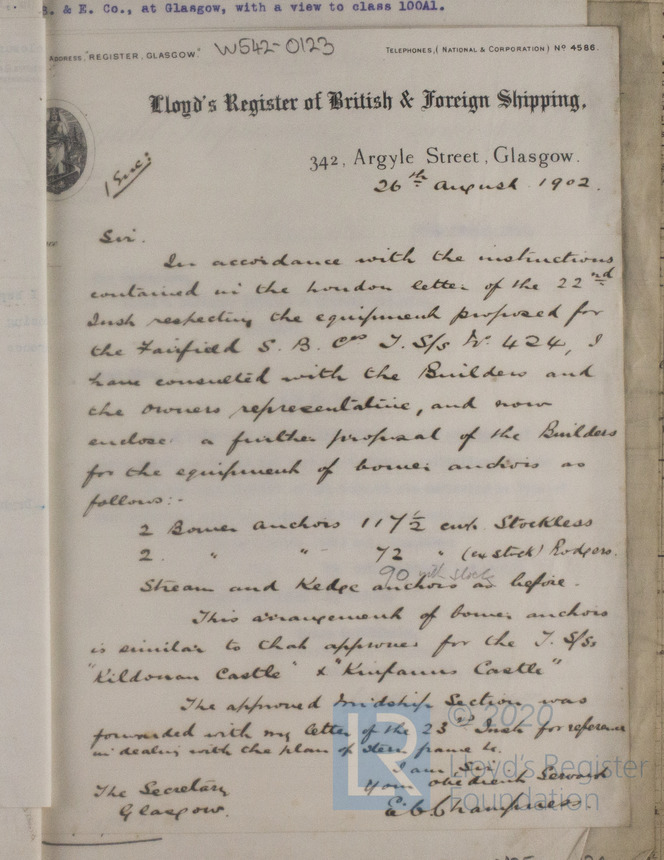 B. & E. Co., at Glasgow, with a view to class 100A1.
ADDRESS, "REGISTER, GLASGOW."
W542-0123
TELEPHONES, (NATIONAL & CORPORATION) Nº 4586.
Lloyd's Register of British & Foreign Shipping,
342, Argyle Street, Glasgow.
26th August 1902.
Sir.
In accordance with the instructions
contained in the London letter of the 22nd
Inst respecting the equipment proposed for
the Fairfield S. B. Cos T. S/s Nº 424, I
have consulted with the Builders and
the owners representative, and now
enclose a further proposal of the Builders
for the equipment of bower anchors as
follows:-
2 Bower anchors 117½ cwt. Stockless
2 " " 72 " (ex stock) Rodgers.
90 with stock
Stream and Kedge anchors as before.
This arrangement of bower anchors
is similar to that approved for the T. S/s,
"Kildonan Castle" & "Kinfauns Castle"
The approved Midship Section was
forwarded with my letter of the 23rd Inst for reference
in dealing with the plan of stern frame &c.
I am Sir
Your obedient Servant
E. C. Champness.
The Secretary
Glasgow.
LR
© 2020
Lloyd's Register
Foundation